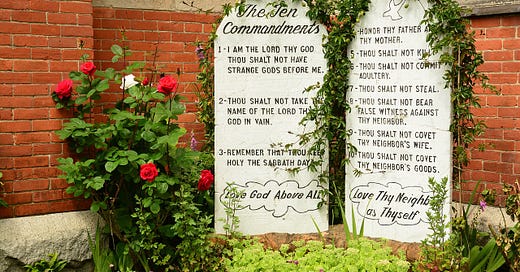 The Ten
Commandments
1-I AM THE LORD THY GOD
THOU SHALT NOT HAVE
STRANGE GODS BEFORE ME.
2-THOU SHALT NOT TAKE
NAME OF THE LORD
GOD IN VAIN.
3-REMEMBER THAT
HOLY THE SABBATH DAY
Love God Above All
HONOR THY FATHER
THY MOTHER.
5-THOU SHALT NOT KILL
6-THOU SHALT NOT COMMIT
ADULTERY.
7-THOU SHALT NOT STEAL.
8-THOU SHALT NOT BEAR
FALSE WITNESS AGAINST
THY NEIGHBOR.
9-THOU SHALT NOT COVET
THY NEIGHBOR'S WIFE.
THOU SHALT NOT COVET
THY NEIGHBOR'S GOODS.
Love Thy Neighbor
as Thyself